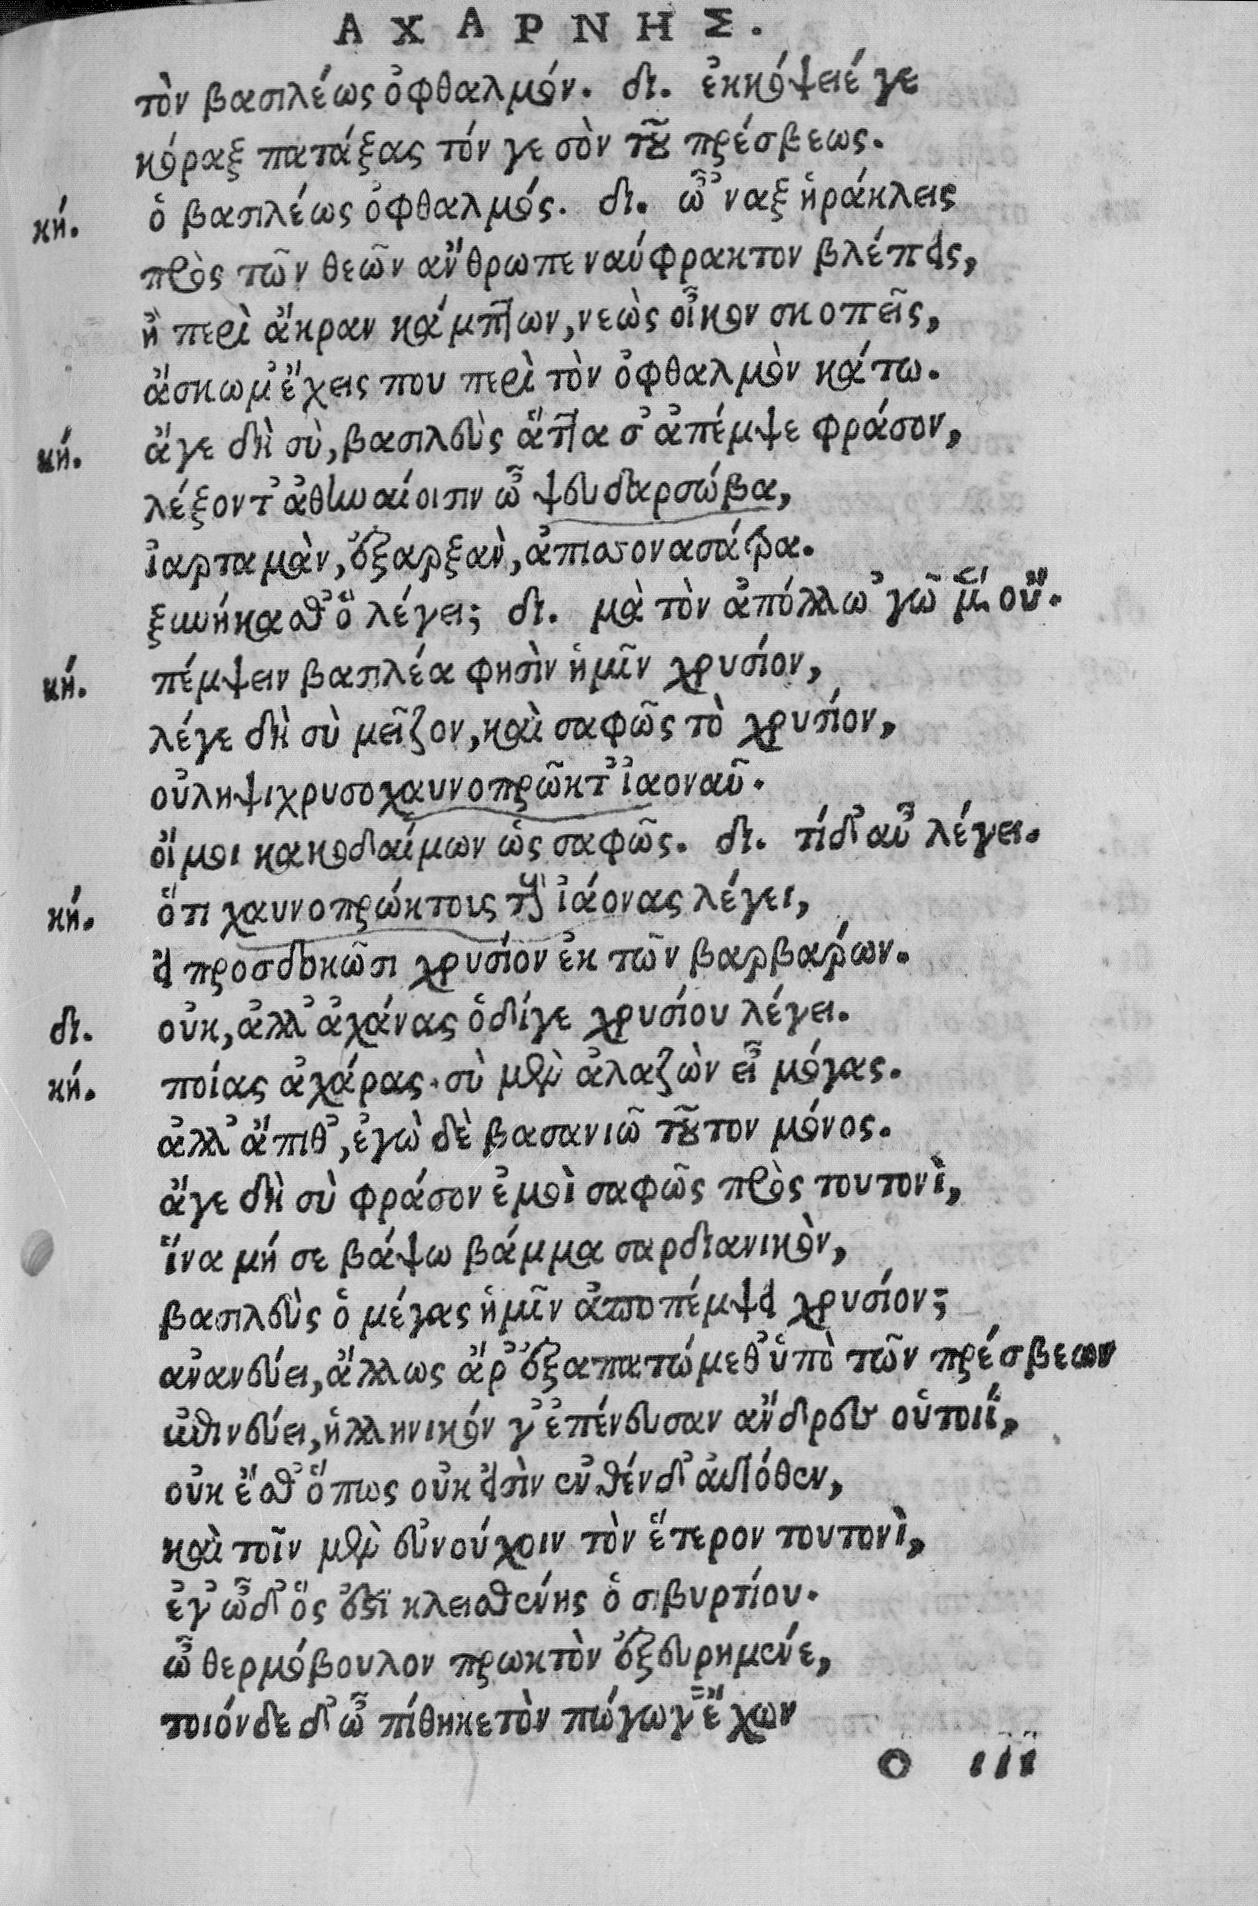 ΑΧΑΡΝΗΣ.
τὸν βασιλέως ὀφθαλμόν. δι. ἐκκόψειέ γε
κόραξ πατάξας τόν γε σὸν τοῦ πρέσβεως.
κή. ὁ βασιλέως ὀφθαλμός. δι. ὦ ᾿ναξ ἡράκλεις
πρὸς τῶν θεῶν ἄνθρωπε ναύφρακτον βλέπεις,
ἢ περὶ ἄκραν κάμπτων, νεὼς οἶκον σκοπεῖς,
ἄσκωμ᾿ ἔχεις που περὶ τὸν ὀφθαλμὸν κάτω.
κή. ἄγε δὴ σὺ, βασιλεὺς ἅττα σ᾿ ἀπέμψε φράσον,
λέξοντ᾿ ἀθηναίοισιν ὦ ψευδαρτάβα,
ἰαρταμὰν, ἐξαρξαν, ἀπισσονασάτρα.
ξυνήκαθ᾿ ὃ λέγει; δι. μὰ τὸν ἀπόλλω ᾿γὼ μὲν οὔ.
κή. πέμψειν βασιλέα φησὶν ἡμῖν χρυσίον,
λέγε δὴ σὺ μεῖζον, καὶ σαφῶς τὸ χρυσίον,
οὐληψιχρυσοχαυνοπρῶκτ᾿ ἰαοναῦ.
οἴμοι κακοδαίμων ὡς σαφῶς. δι. τί δ᾿ αὖ λέγει.
κή. ὅτι χαυνοπρώκτοις τοὺς ἰάονας λέγει,
εἰ προσδοκῶσι χρυσίον ἐκ τῶν βαρβάρων.
δι. οὐκ, ἀλλ᾿ ἀχάνας ὁδί γε χρυσίου λέγει.
κή. ποίας ἀχάρας. σὺ μὲν ἀλαζὼν εἶ μέγας.
ἀλλ᾿ ἄπιθ᾿, ἐγὼ δὲ βασανιῶ τοῦτον μόνος.
ἄγε δὴ σὺ φράσον ἐμοὶ σαφῶς πρὸς τουτονὶ,
ἵνα μή σε βάψω βάμμα σαρδιανικὸν,
βασιλεὺς ὁ μέγας ἡμῖν ἀποπέμψει χρυσίον;
ἀνανεύει, ἄλλως ἄρ᾿ ἐξαπατώμεθ᾿ ὑπὸ τῶν πρέσβεων
ἐπινεύει, ἡλληνικόν γ᾿ ἐπένευσαν ἄνδρες οὑτοιί,
οὐκ ἔσθ᾿ ὅπως οὐκ εἰσὶν ἐνθένδ᾿ αὐτόθεν,
καὶ τοῖν μὲν εὐνούχοιν τὸν ἕτερον τουτονὶ,
ἐγ᾿ ᾦδ᾿ ὅς ἐστι κλεισθένης ὁ σιβυρτίου.
ὦ θερμόβουλον πρωκτὸν ἐξευρημένε,
ποιόνδε δ᾿ ὦ πίθηκε τὸν πώγων᾿ ἔχων
ο iii